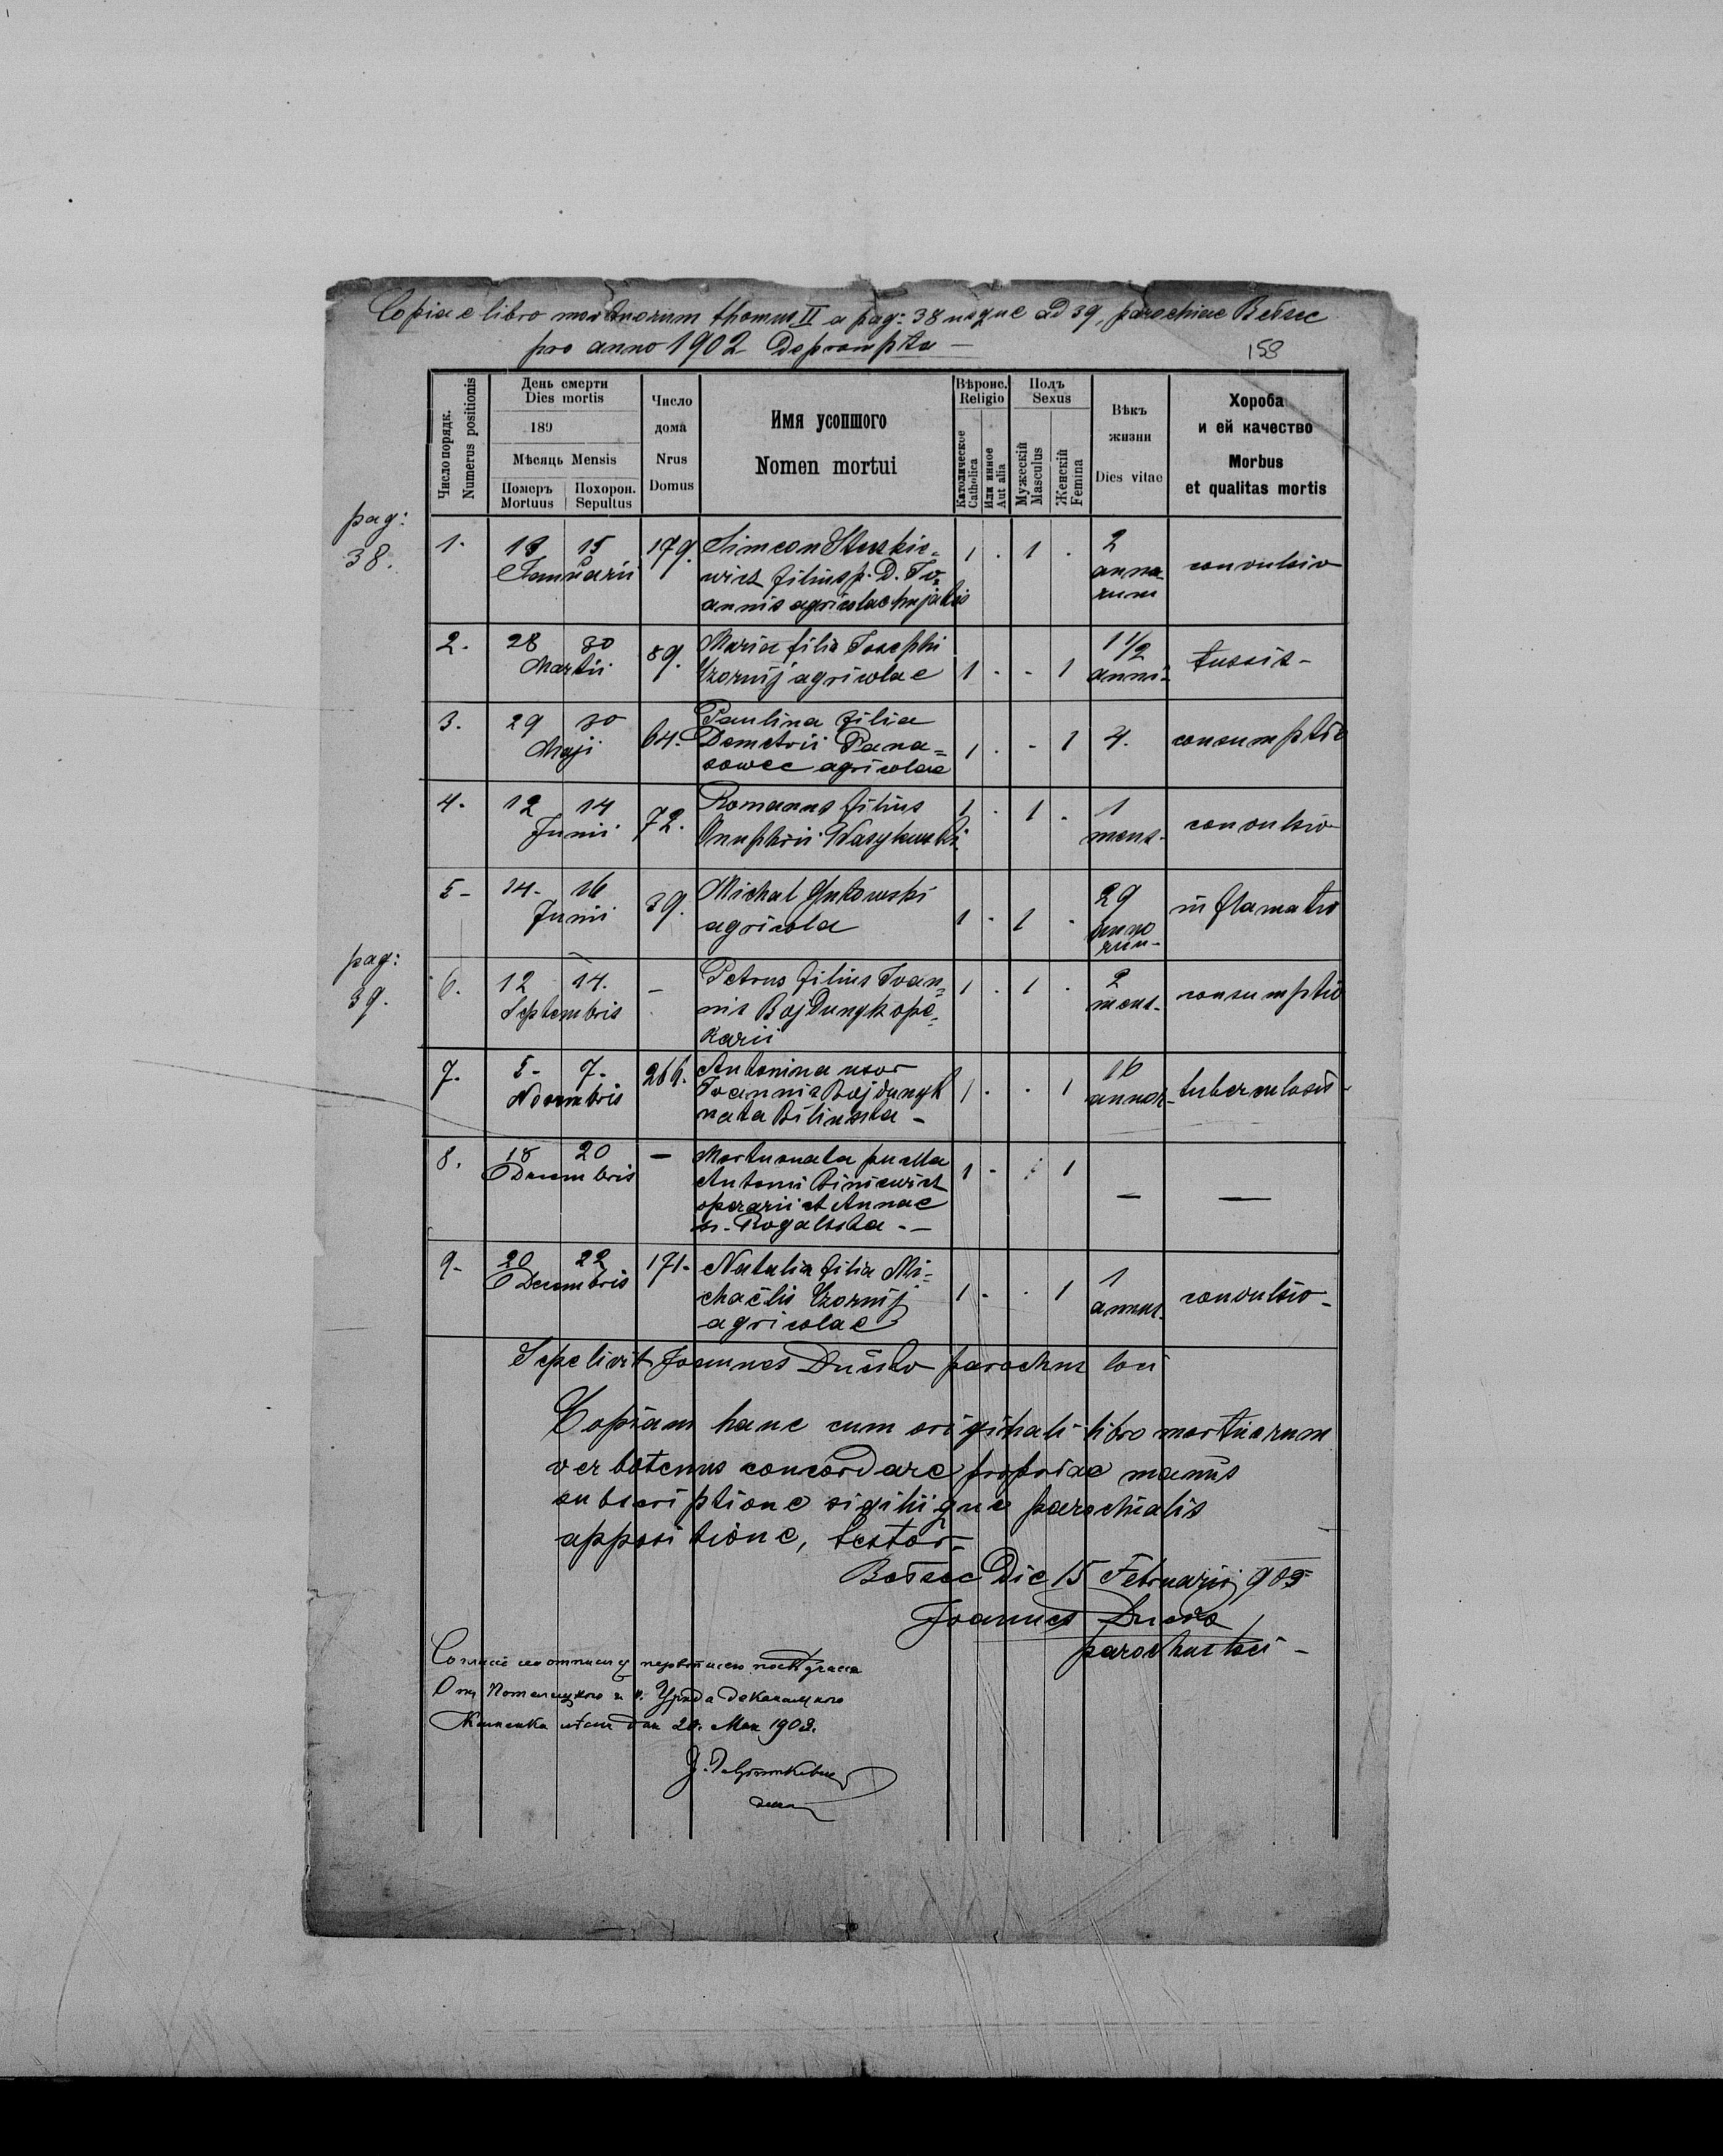 Copia e libro mortuorum thomus II a pag: 38 usque ad 39, parochiae Bełzec
pro anno 1902 deprompta —
158
Число порядк.
Numerus positionis
День смерти
Dies mortis
189
Мѣсяць Mensis
Померъ Mortuus
Похорон. Sepultus
Число дома
Nrus Domus
Имя усопшого
Nomen mortui
Вѣроис.
Religio
Католическое Catholica
Или инное Aut alia
Полъ
Sexus
Мужескій Masculus
Женскій Femina
Вѣкъ жизни
Dies vitae
Хороба и ей качество
Morbus et qualitas mortis
pag:
38.
1. 13 15 179. Simeon
Januarii filius p. D. Jo=
annis agricolae hujatis
1 . 1 . 2 anno-rum convulsio
2. 28 30 89. Maria filia Josephi
Martii Czornij agricolae
1 . - 1 1 1/2 anni- tussis -
3. 29 30 64. Paulina filia
Maji Demetrii Pana=
sowec agricolae
1 . - 1 4. consumptio
4. 12 14 72. Romanus filius
Junii Onuphrii
1 . 1 . 1 mens- convulsio
5- 14- 16 39. Michal Gutowski
Junii agricola
1 . 1 . 29 anno rum- inflamatio
pag:
39.
6. 12 14. - Petrus filius Joan=
Septembris nis Bojdunyk ope=
rarii
1 . 1 . 2 mens- consumptio
7. 5- 7- 266. Antonina uxor
Novembris Joannis Bojdunyk
nata Bilinska -
1 . . 1 16 annor- tuberculosis
8. 18 20 — Mortuonata puella
Decembris Antonii Biniewicz
operarii et Annae
n. Rogalska - —
1 - . 1 — —
9- 20 22 171- Natalia filia Mi=
Decembris chaëlis Czornij
agricolae
1 - . 1 1 annus- convulsio -
Sepelivit Joannes Dućko parochus loci
Copiam hanc cum originali libro mortuorum
verbotenus concordare propriae manus
subscriptione sigiliique parochialis
appositione, testor-
Bełzec die 15 Februarii 903
Joannes Ducko
parochus loci -
От Потелицкого г. к. Уряда деканального
Каменка дня 20. Мая 1903.
декан